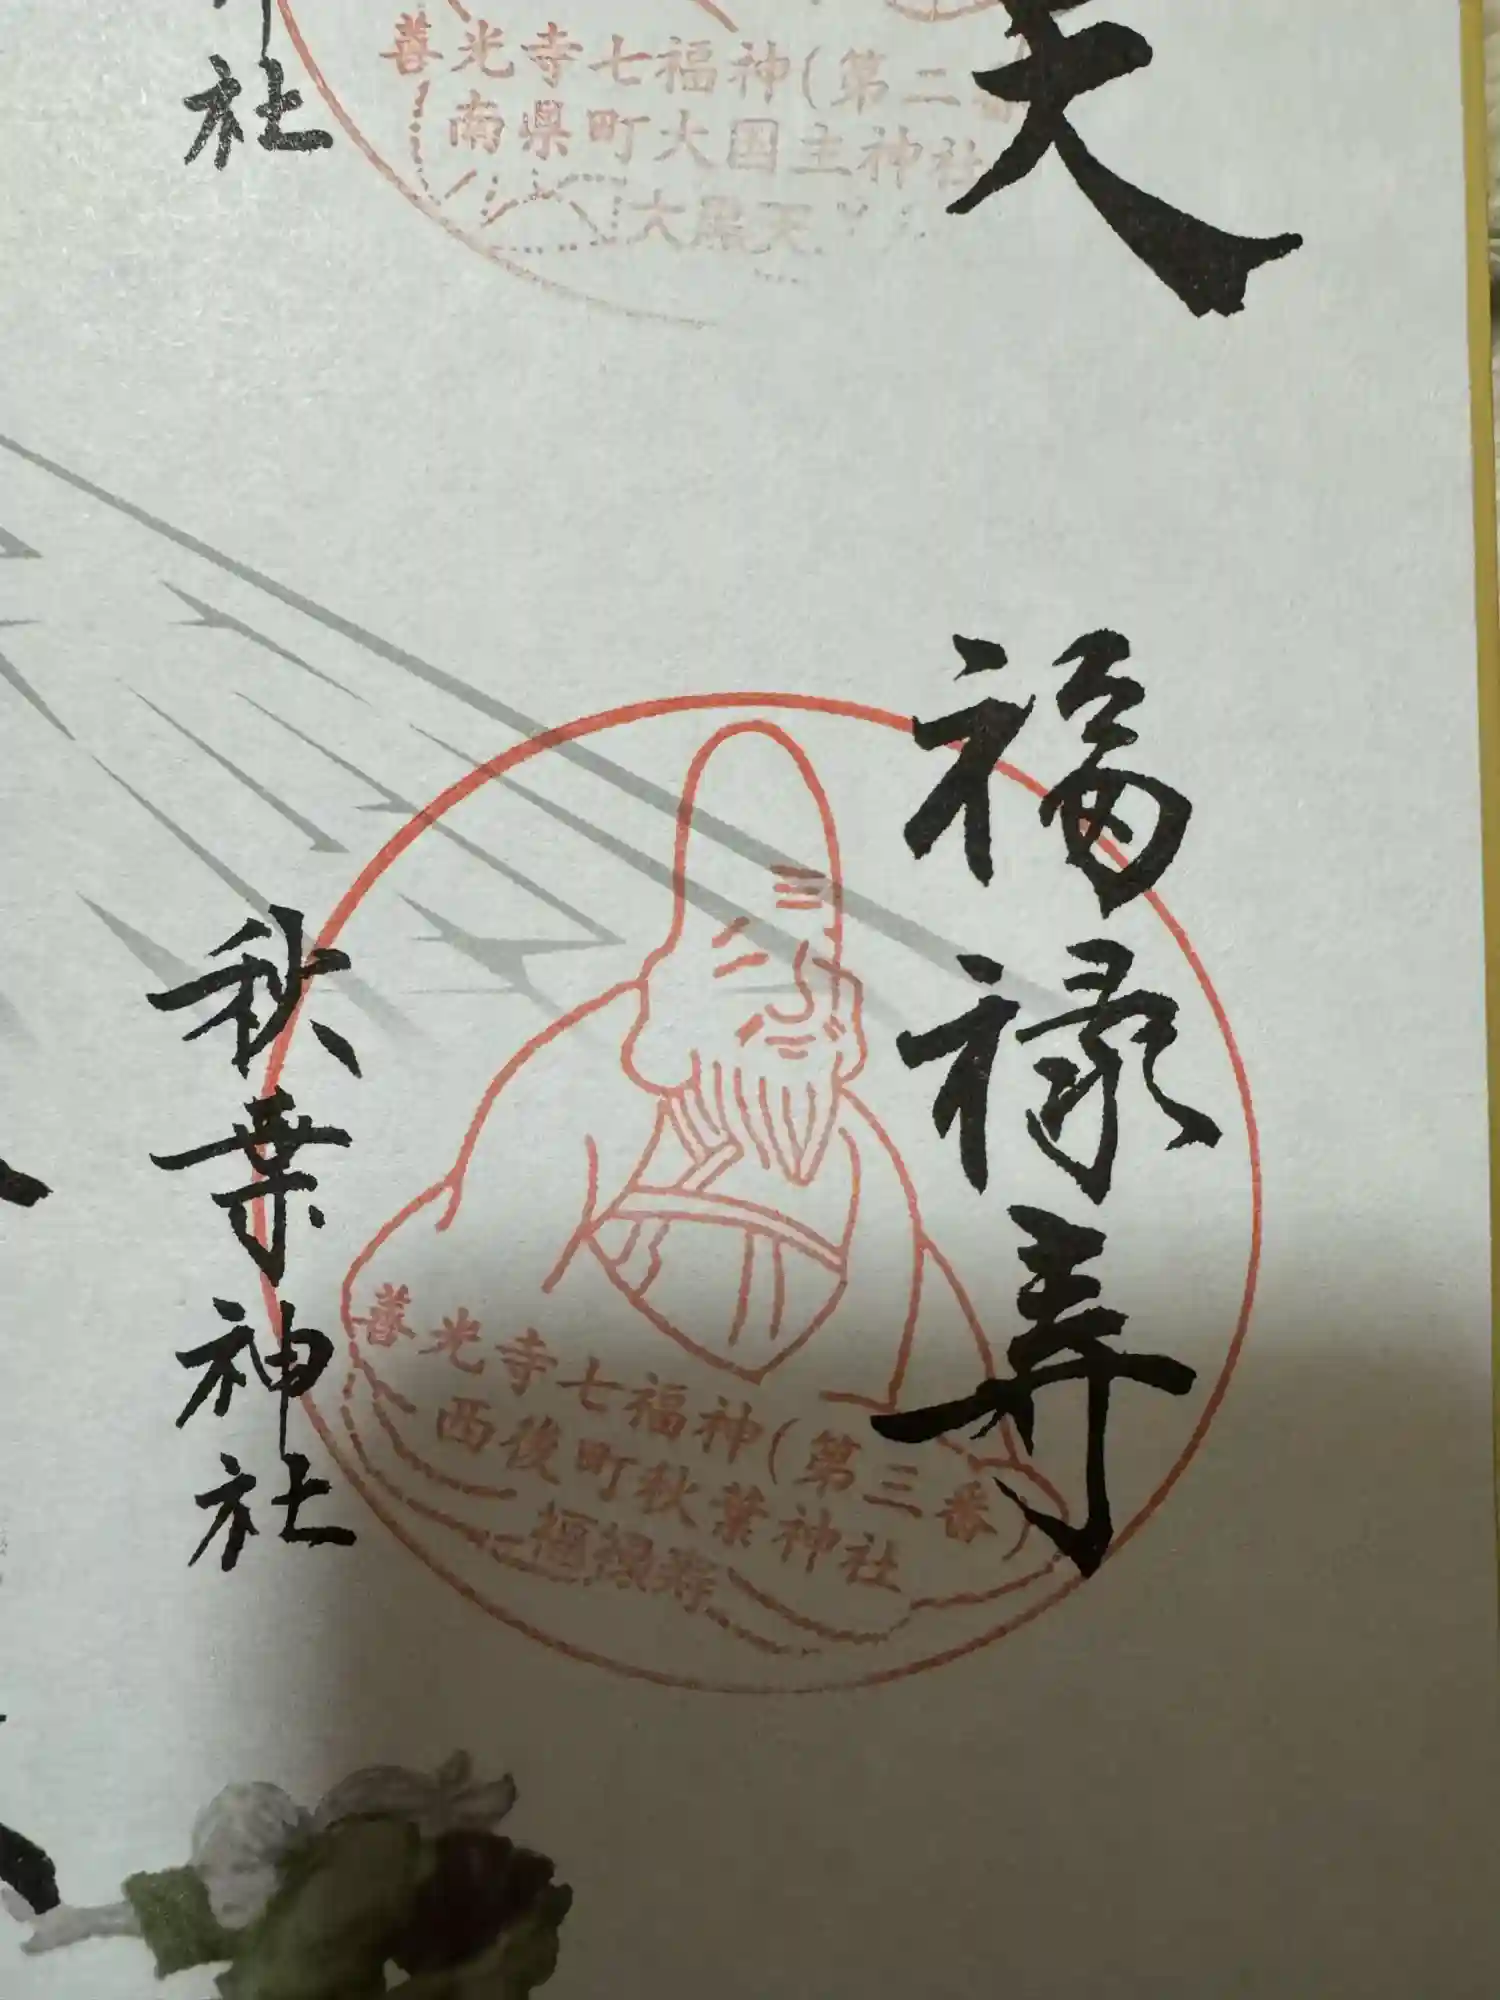 天
善光寺七福神(第二番
南県町大国主神社
大黒天
社
福禄寿
善光寺七福神(第三番)
西後町秋葉神社
福禄寿
秋葉神社